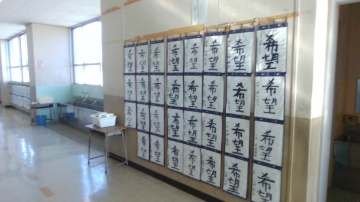 希望 希望 希望 希望 希望 希望 希望 希望
希望 希望 希望 希望 希望 希望 希望 希望
希望 希望 希望 希望 希望 希望 希望 希望
希望 希望 希望 希望 希望 希望 希望 希望